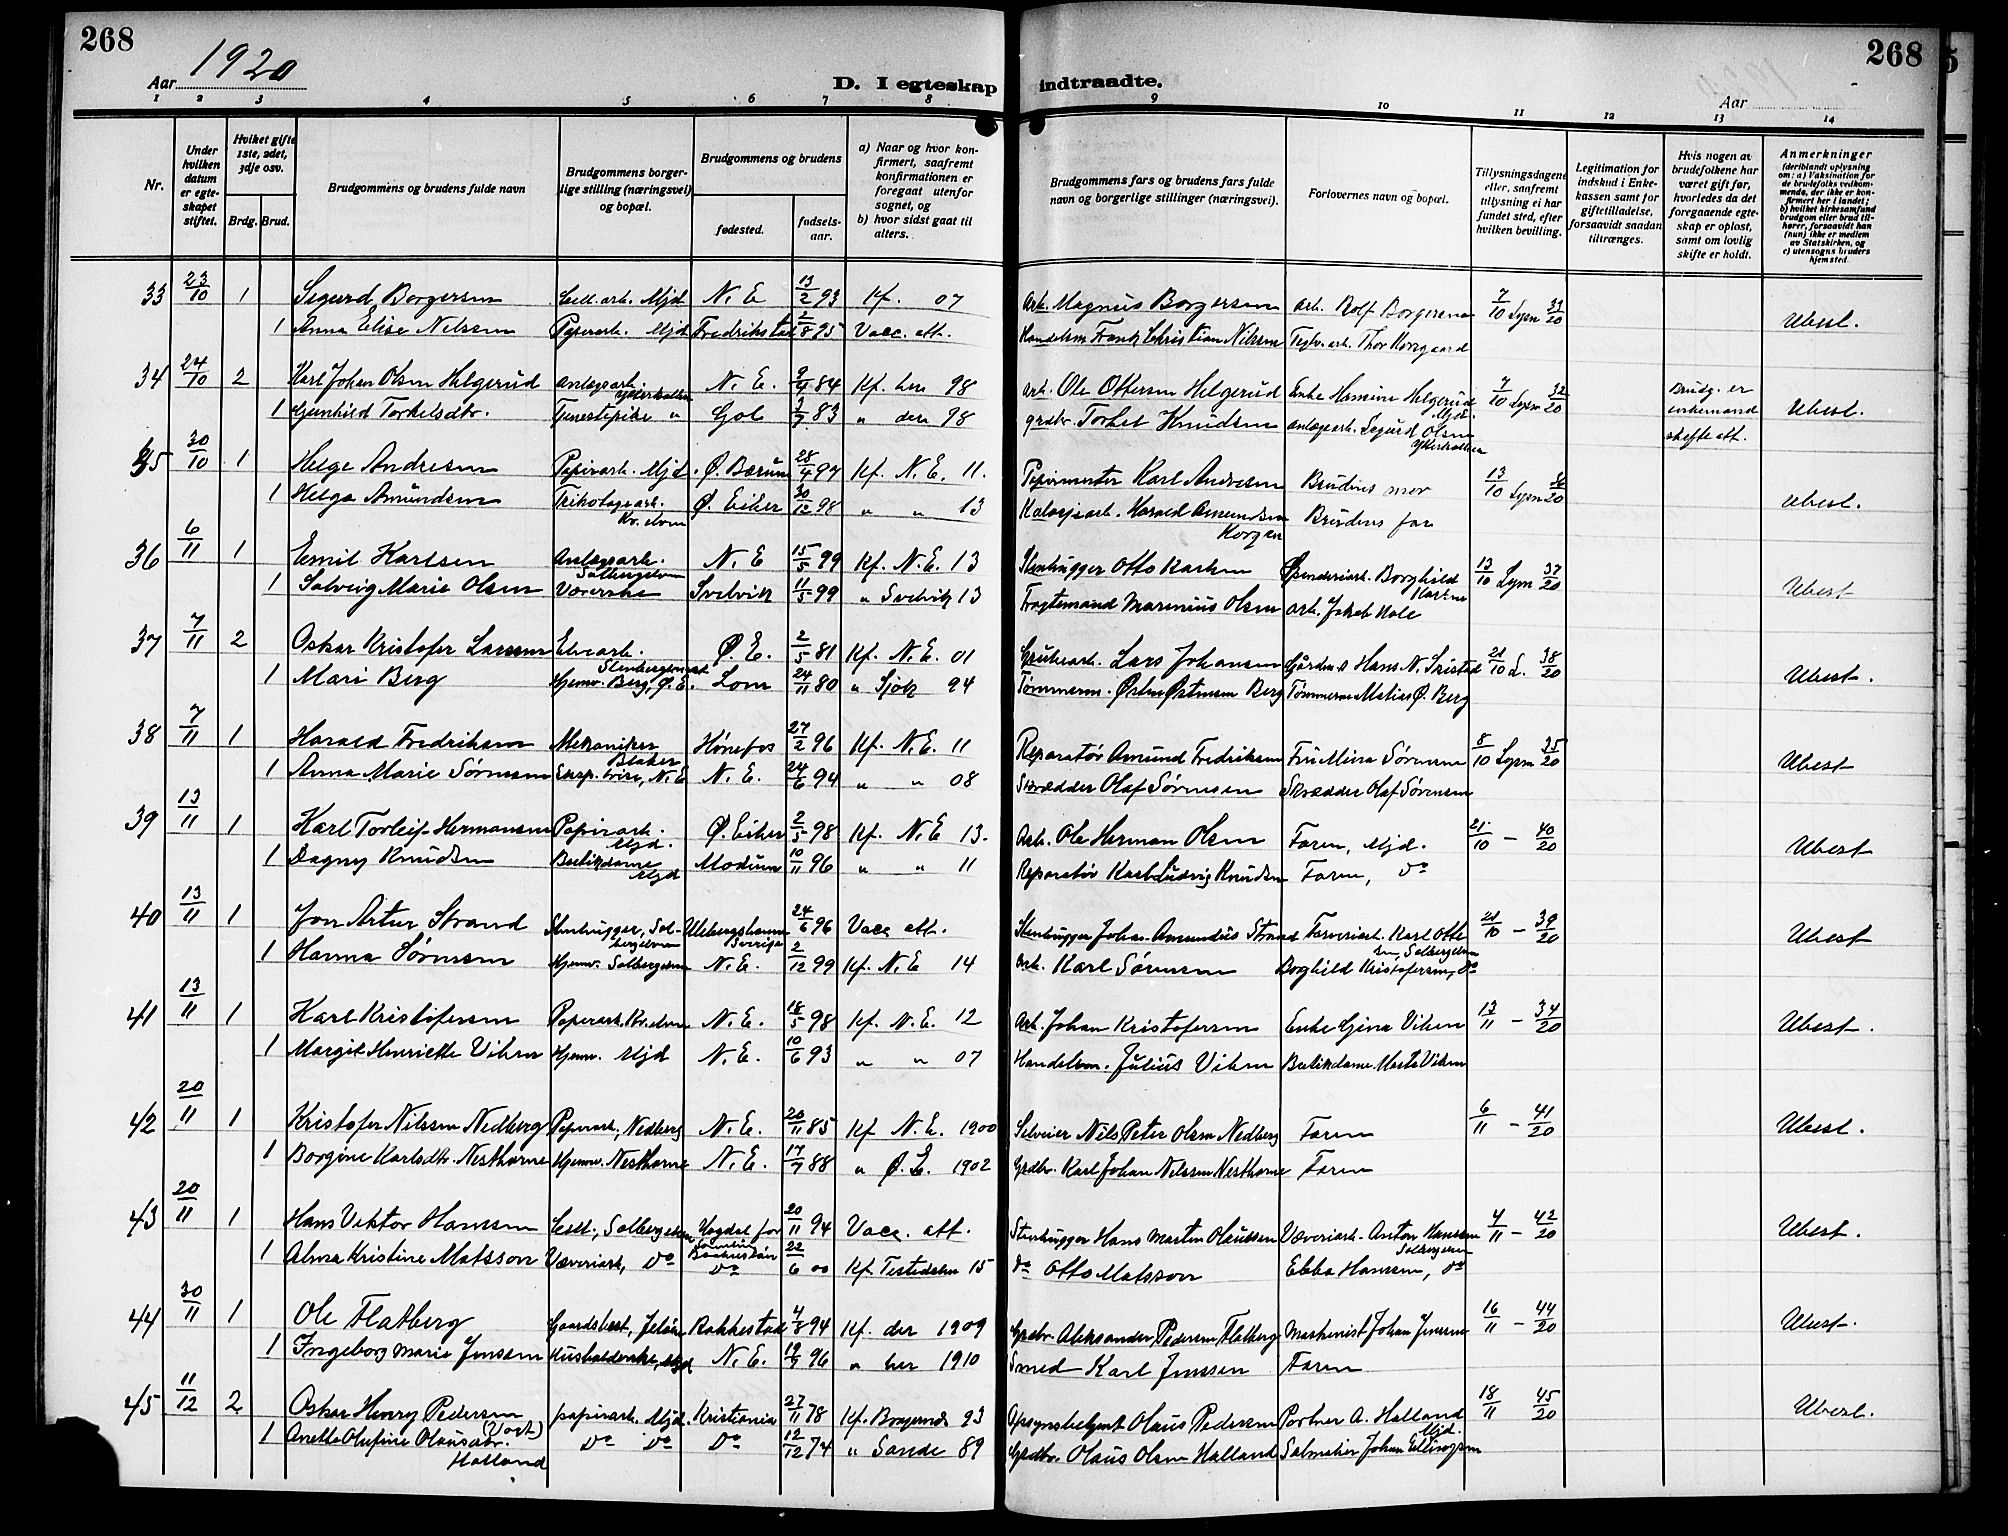 268
Aar 1920
D. I egteskap indtraadte.
Aar
268
1 2 3 4 5 6 7 8 9 10 11 12 13 14
Nr.
Under hvilken datum er egteskapet stiftet.
Hvilket gifte 1ste, 2det, 3dje osv.
Brdg. Brud.
Brudgommens og brudens fulde navn
Brudgommens borgerlige stilling (næringsvei) og bopæl.
Brudgommens og brudens
fødested.
fødselsaar.
a) Naar og hvor konfirmert, saafremt konfirmationen er foregaat utenfor sognet, og
b) hvor sidst gaat til alters.
Brudgommens fars og brudens fars fulde navn og borgerlige stillinger (næringsvei).
Forlovernes navn og bopæl.
Tillysningsdagene eller, saafremt tillysning ei har fundet sted, efter hvilken bevilling.
Legitimation for indskud i Enkekassen samt for giftetilladelse, forsaavidt saadan tiltrænges.
Hvis nogen av brudefolkene har været gift før, hvorledes da det foregaaende egteskap er opløst, samt om lovlig skifte er holdt.
Anmerkninger (deriblandt oplysning om: a) Vaksination for de brudefolks vedkommende, der ikke er konfirmert her i landet; b) hvilket kirkesamfund brudgom eller brud tilhører, forsaavidt han (hun) ikke er medlem av Statskirken, og c) utensogns bruders hjemsted.
33 23/10 1 Sigurd Borgersen Cell.arb. Mjd N. E 13/2 93 Kf. 07 Arb. Magnus Borgersen arb. Rolf Borgersen 7/10 Lysn 31/20 Ubesl.
1 Anna Elise Nilssen Papirarb. Mjd Fredrikstad 2/8 95 Vacc. att. Handelsm Frantz Christian Nilssen Teglv.arb. Thor Korsgaard
34 24/10 2 Karl Johan Olsen Helgerud anlægsarb. Ytterkollen N. E. 9/4 84 Kf. her 98 Arb. Ole Ottersen Helgerud Enke Hemine Helgerud Mjd. 7/10 Lysn 32/20 Brudg. er enkemand skifte att. Ubesl.
1 Gunhild Torkelsdtr. Tjenestepike " Gol 3/7 83 " der 98 grdbr. Torkel Knudsen anlægsarb. Sigurd Olsen Ytterkollen
35 30/10 1 Helge Andresen Papirarb. Mjd. Ø. Bærum 28/4 94 Kf. N. E. 11. Papirmester Karl Andresen Brudens mor 13/10 Lysn 36/20 Ubesl.
1 Helga Amundsen Trikotagearb. Kr.elven Ø. Eiker 30/12 98 " " 13 Harald Amundsen Korgen Brudens far
36 6/11 1 Emil Karlsen Anlægsarb. Solbergelven N. E 15/5 99 Kf. N. E. 13 Stenhugger Otto Karlsen Spinneriarb. Borghild Karlsen 13/10 Lysn 37/20 Ubesl
1 Solveig Marie Olsen Væverske Svelvik 11/5 99 " Svelvik 13 Fragtemand Marinius Olsen arb. Jakob Hole
37 7/11 2 Oskar Kristofer Larssen Elvearb. Ø. E. 2/5 81 Kf. N. E. 01 Grubearb. Lars Johansen Hans N. 21/10 L. 38/20 Ubesl.
1 Mari Berg Hjemv. Berg, Ø. E. Lom 24/11 80 " Sjåk 94 Tømmerm. Østen Østensen Berg Tømmerm Matias Ø. Berg
38 7/11 1 Harald Fredriksen Mekaniker Blaker Hønefos 27/2 96 Kf. N. E. 11 Reparatør Amund Fredriksen Fru Mina Sørensen 8/10 Lysn 35/20 Ubesl
1 Anna Marie Sørensen N. E N. E. 24/6 94 " " 08 Skrædder Olaf Sørensen Skrædder Olaf Sørensen
39 13/11 1 Karl Torleif Hermansen Papirarb. Mjd. Ø. Eiker 2/5 98 Kf. N. E 13. Arb. Ole Herman Olsen Faren, Mjd. 21/10 – 40/20 Ubesl
1 Dagny Knudsen Butikdame Mjd Modum 10/11 96 " " 11 Reparatør Karl Ludvig Knudsen Faren, do
40 13/11 1 Jon Artur Strand Stenhugger, Solbergelven Ulebergshamn Sverige 24/6 96 Vacc. att. Stenhugger Johan Amundus Strand Farveriarb. Karl Ottesen, Solbergelven 21/10 – 39/20 Ubesl
1 Hanna Sørensen Hjemv. Solbergelven N. E. 2/12 99 Kf. N. E 14 Arb. Karl Sørensen Borghild Kristofersen, do
41 13/11 1 Karl Kristofersen Papirarb. Kr.elven N. E. 18/5 98 Kf. N. E. 12 Arb. Johan Kristofersen Enke Gina Viken 13/11 – 34/20 Ubesl.
1 Margit Henriette Viken Hjemv. Mjd N. E. 10/6 93 " " 07 Handelsm. Julius Viken Butikdame Marta Viken
42 20/11 1 Kristofer Nilssen Nedberg Papirarb., Nedberg N. E. 20/11 85 Kf N. E. 1900 Selveier Nils Peter Olsen Nedberg Faren 6/11 – 41/20 Ubesl.
1 Borgine Karlsdtr. Nesthorne Hjemv. Nesthorne N. E. 17/7 88 " Ø. E. 1902 Grdbr. Karl Johan Nilssen Nesthorne Faren
43 20/11 1 Hans Viktor Hanssen Cell., Solbergelven Hogdal for samling Baahuslän 20/11 94 Vacc. att. Stenhugger Hans Martin Olaussen Væveriarb. Anton Hanssen Solbergelven 4/11 – 42/20 Ubesl.
1 Alma Kristine Matsson Væveriarb, do do 22/6 00 Kf. Tistedalen 15 do Otto Matsson Ebba Hanssen, do
44 30/11 1 Ole Flatberg Gaardsbest., Jeløen Rakkestad 4/8 94 Kf. der 1909 Grdbr. Aleksander Pedersen Flatberg Maskinist Johan Jenssen 16/11 – 44/20 Ubesl.
1 Ingeborg Marie Jenssen Husholderske, Mjd N. E. 19/7 96 " her 1910 Smed Karl Jenssen Faren
45 11/12 2 Oskar Henry Pedersen papirarb. Mjd. Kristiania 27/11 78 Kf. Bragernes 93 Opsynsbetjent Olaus Pedersen Portner A. Halland Mjd. 18/11 45/20 Ubesl.
1 Anette Olufine Olausdtr. Halland do do do 12/12 74 " Sande 89 Grdbr. Olaus Olsen Halland Salmaker Johan Ellingsen